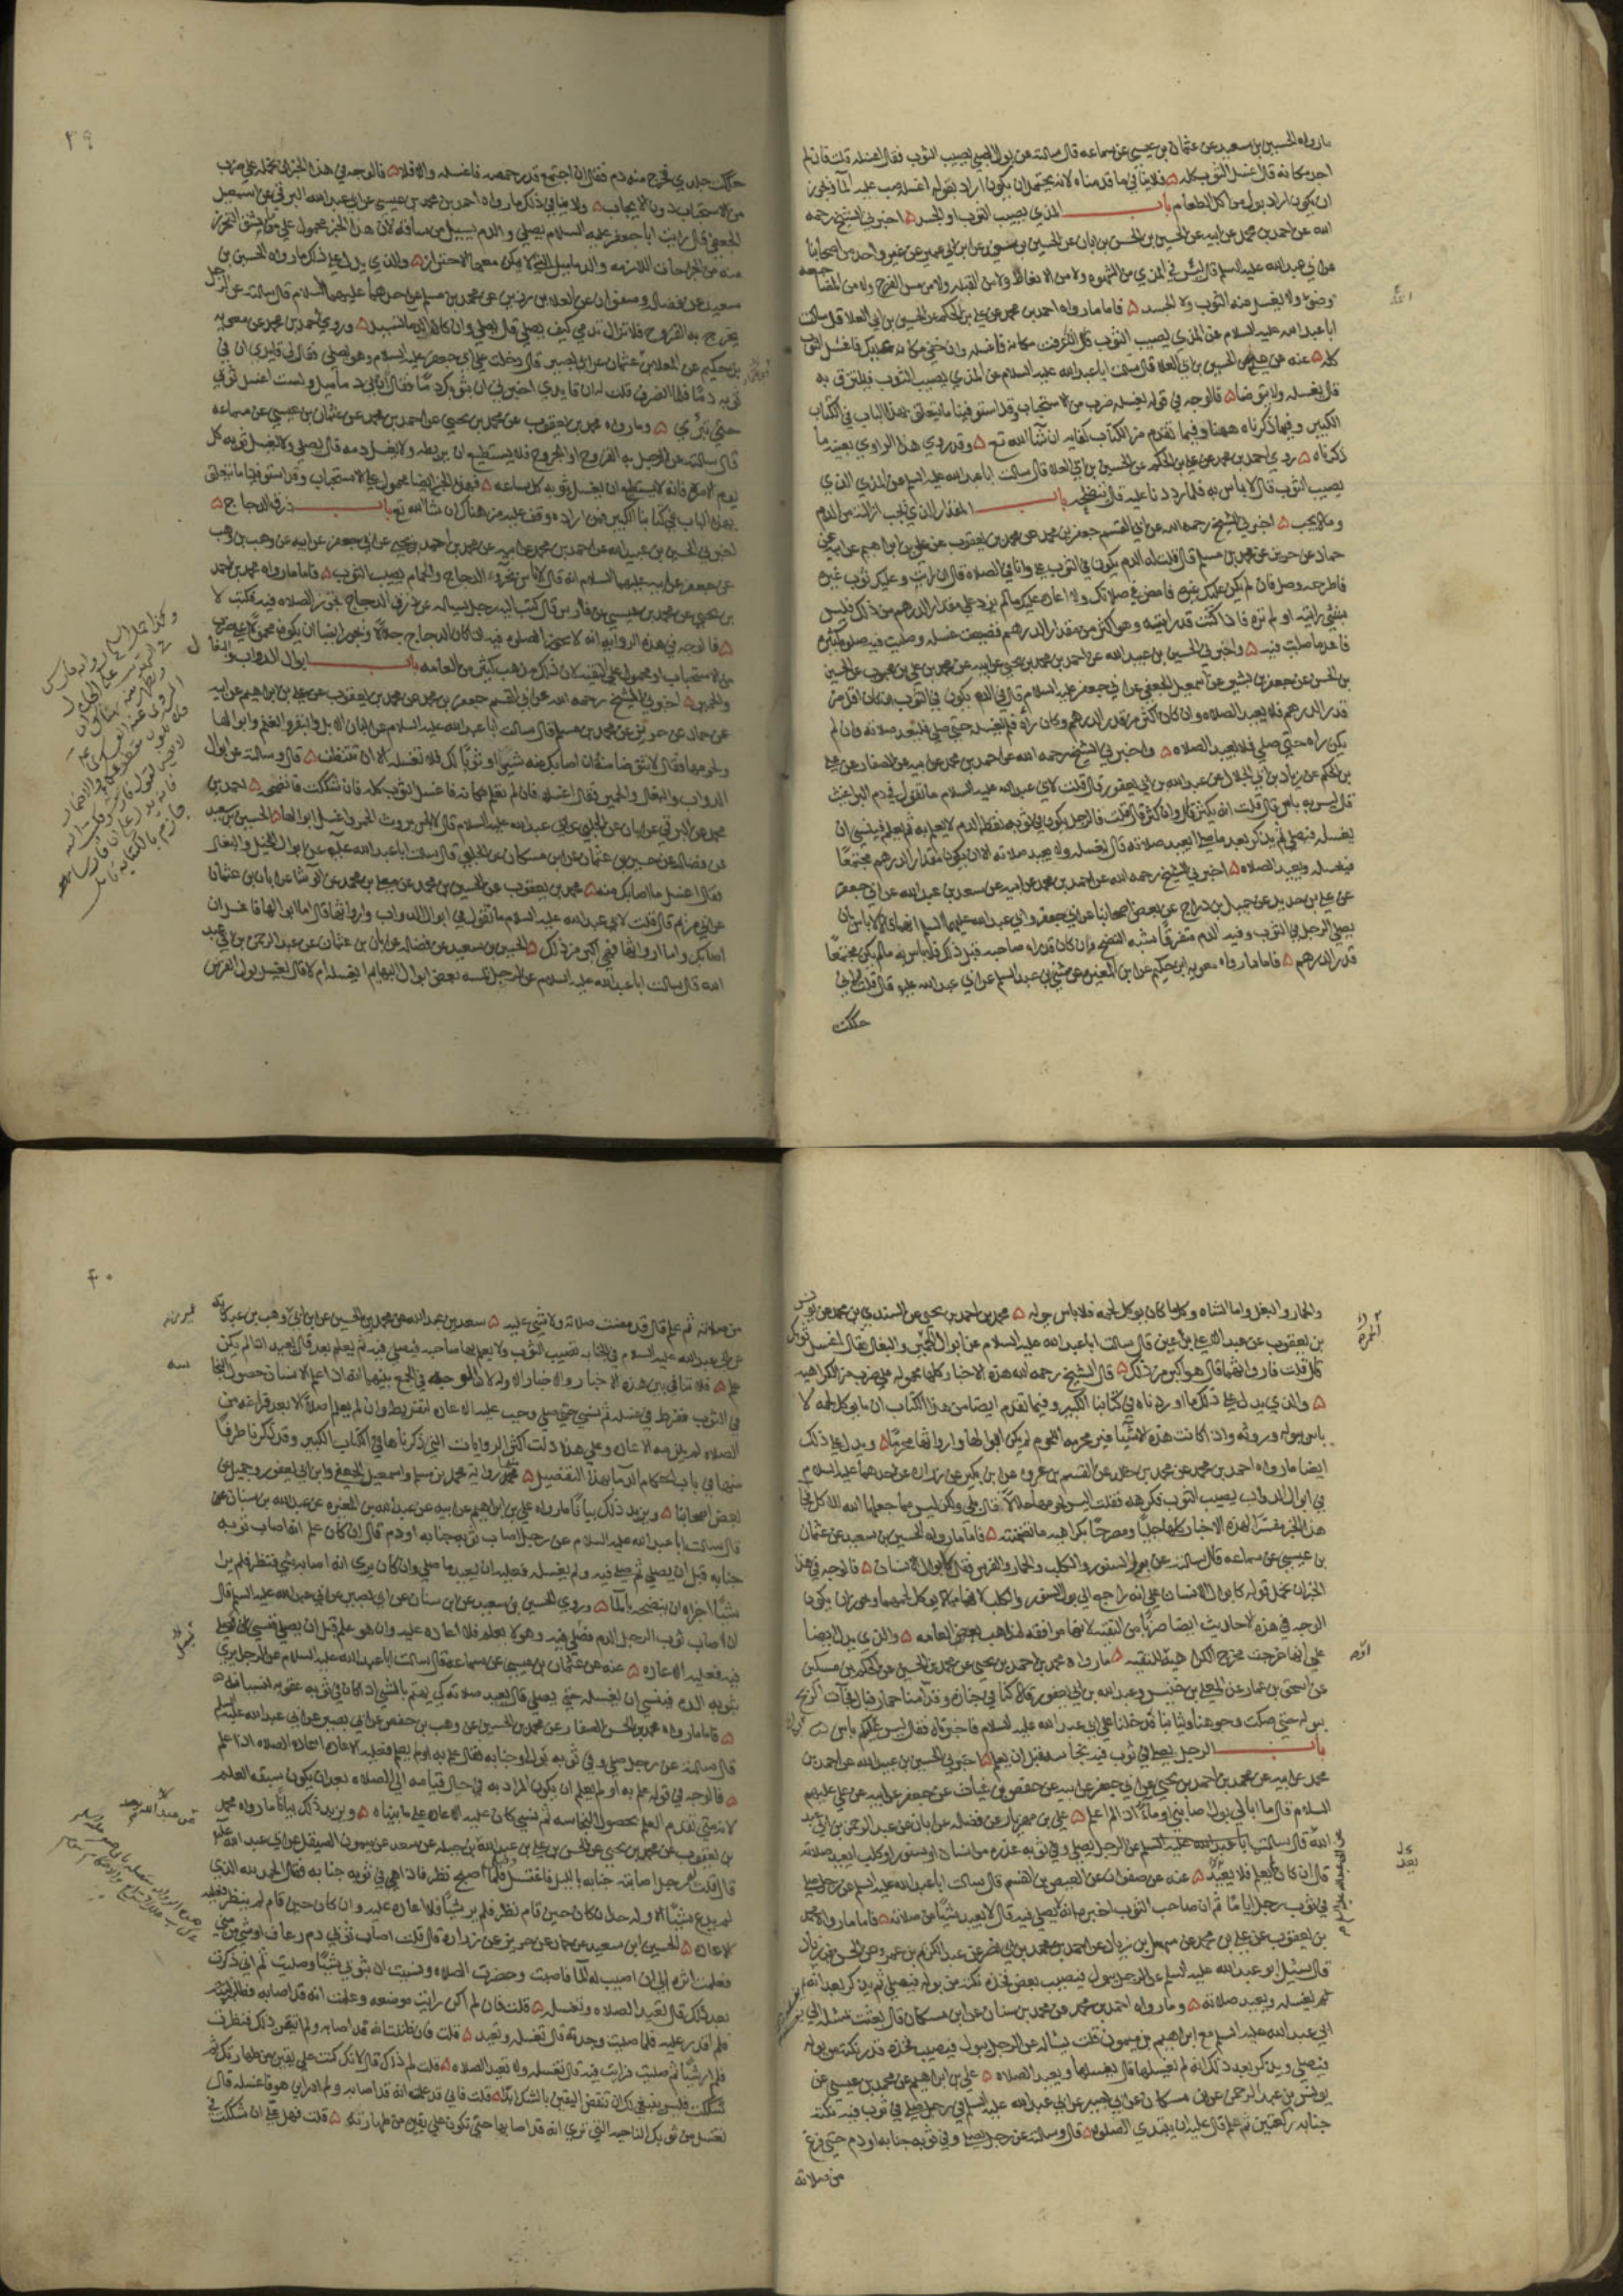 مارواه الحسين بن سعيد عن عثمان بن عيسى عن سماعه قال سالته عن بول الصبي يصيب الثوب فقال اغسله قلت فان لم
اجد مكانه قال اغسل الثوب كله فلا ينافي ما قدمناه لانه يحتمل ان يكون اراد بقوله اغسله صب عليه الماء ويجوز
ان يكون اراد بول من اكل الطعام باب المذي يصيب الثوب او الجسد اخبرني الشيخ رحمه
الله عن احمد بن محمد عن ابيه عن الحسين بن الحسن بن ابان عن الحسين بن سعيد عن ابن ابي عمير عن غير واحد من اصحابنا
عن ابي عبد الله عليه السلم قال ليس في المذي من الشهوه ولا من الانعاظ ولا من القبله ولا من مس الفرج ولا من المضاجعه
وضوء ولا يغسل منه الثوب ولا الجسد فاما مارواه احمد بن محمد عن علي بن الحكم عن الحسين بن ابي العلا قال سالت
ابا عبد الله عليه السلام عن المذي يصيب الثوب قال ان عرفت مكانه فاغسله وان خفي مكانه عليك فاغسل الثوب
كله عنه عن علي عن الحسين بن ابي العلا قال سالت ابا عبد الله عليه السلام عن المذي يصيب الثوب فيلتزق به
قال يغسله ولا يتوضا فالوجه في قوله يغسله ضرب من الاستحباب وقد استوفينا ما يتعلق بهذا الباب في الكتاب
الكبير وفيما ذكرناه ههنا وفيما تقدم من الكتاب كفايه ان شا الله تع وقد روي هذا الراوي بعينه ما
ذكرناه روى احمد بن محمد عن علي بن الحكم عن الحسين بن ابي العلا قال سالت ابا عبد الله عليه السلم عن المذي الذي
يصيب الثوب قال لا باس به فلما رددنا عليه قال ينضحه باب المقدار الذي يجب ازالته من الدم
وما لا يجب اخبرني الشيخ رحمه الله عن ابي القسم جعفر بن محمد عن محمد بن يعقوب عن علي بن ابراهيم عن ابيه عن
حماد عن حريز عن محمد بن مسلم قال قلت له الدم يكون في الثوب علي وانا في الصلاه قال ان رايت وعليك ثوب غيره
فاطرحه وصل فان لم يكن عليك غيره فامض في صلاتك ولا اعاده عليك ما لم يزد على مقدار الدرهم من ذلك فليس
بشي رايته او لم تره فاذا كنت قد رايته وهو اكثر من مقدار الدرهم فضيعت غسله وصليت فيه صلوه كثيره
فاعد ما صليت فيه واخبرني الحسين بن عبيد الله عن احمد بن محمد بن يحيى عن ابيه عن محمد بن علي بن محبوب عن الحسين
بن الحسن عن جعفر بن بشير عن اسمعيل الجعفي عن ابي جعفر عليه السلام قال في الدم يكون في الثوب ان كان اقل من
قدر الدرهم فلا يعيد الصلاه وان كان اكثر من قدر الدرهم وكان راه فلم يغسله حتى صلى فليعد صلاته وان لم
يكن راه حتى صلى فلا يعيد الصلاه واخبرني الشيخ رحمه الله عن احمد بن محمد عن ابيه عن الصفار عن علي
بن الحكم عن زياد بن ابي الحلال عن عبد الله بن ابي يعفور قال قلت لابي عبد الله عليه السلام ما تقول في دم البراغيث
قال ليس به باس قال قلت انه يكثر قال وان كثر قال قلت فالرجل يكون في ثوبه نقط الدم لا يعلم به ثم يعلم فينسي ان
يغسله فيصلي ثم يذكر بعد ما صلى ايعيد صلاته قال يغسله ولا يعيد صلاته الا ان يكون مقدار الدرهم مجتمعا
فيغسله ويعيد الصلاه اخبرني الشيخ رحمه الله عن احمد بن محمد عن ابيه عن سعد بن عبد الله عن ابي جعفر
عن علي بن حديد عن جميل بن دراج عن بعض اصحابنا عن ابي جعفر وابي عبد الله عليهما السلم انهما قالا لا باس بان
يصلي الرجل في الثوب وفيه الدم متفرقا شبه النضح وان كان قد راه صاحبه قبل ذلك فلا باس به ما لم يكن مجتمعا
قدر الدرهم فاما مارواه معويه بن حكيم عن ابن المغيره عن مثنى بن عبد السلم عن ابي عبد الله عليه قال قلت له اني
حككت
٣٩
حككت جلدي فخرج منه دم فقال ان اجتمع قدر حمصه فاغسله والا فلا فالوجه في هذا الخبر ان نحمله على ضرب
من الاستحباب دون الايجاب ولا ينافي ذلك مارواه احمد بن محمد بن عيسى عن ابي عبد الله البرقي عن اسمعيل
الجعفي قال رايت ابا جعفر عليه السلام يصلي والدم يسيل من ساقه لان هذا الخبر محمول على ما يشق التحرز
منه من الجراحات اللازمه والدماميل التي لا يمكن معها الاحتراز والذي يدل على ذلك مارواه الحسين بن
سعيد عن فضاله وصفوان عن العلا بن رزين عن محمد بن مسلم عن احدهما عليهما السلام قال سالته عن الرجل
يخرج به القروح فلا تزال تدمي كيف يصلي قال يصلي وان كانت الدما تسيل وروى احمد بن محمد عن معويه
بن حكيم عن المعلا بن عثمان عن ابي بصير قال دخلت على ابي جعفر عليه السلام وهو يصلي فقال لي قايدي ان في
ثوبه دما فلما انصرف قلت له ان قايدي اخبرني ان بثوبك دما فقال ان بي دماميل ولست اغسل ثوبي
حتى تبرئ وما رواه محمد بن يعقوب عن محمد بن يحيى عن احمد بن محمد عن عثمان بن عيسى عن سماعه
قال سالته عن الرجل به القروح او الجروح فلا يستطيع ان يربطه ولا يغسل دمه قال يصلي ولا يغسل ثوبه كل
يوم الا مره فانه لا يستطيع ان يغسل ثوبه كل ساعه فهذا الخبر ايضا محمول على الاستحباب وقد استوفينا ما يتعلق
بهذا الباب في كتابنا الكبير فمن اراده وقف عليه من هناك ان شا الله تع باب ذرق الدجاج
اخبرني الحسين بن عبيد الله عن احمد بن محمد عن ابيه عن محمد بن احمد بن يحيى عن ابي جعفر عن ابيه عن وهب بن وهب
عن جعفر عن ابيه عليهما السلام انه قال لا باس بخرو الدجاج والحمام يصيب الثوب فاما مارواه محمد بن احمد
بن يحيى عن محمد بن عيسى عن فارس قال كتب اليه رجل يساله عن ذرق الدجاج تجوز الصلاه فيه فكتب لا
فالوجه في هذه الروايه انه لا تجوز الصلوه فيه اذا كان الدجاج جلالا ويجوز ايضا ان يكون محمولا على ضرب
من الاستحباب او محمولا على التقيه لان ذلك مذهب كثير من العامه باب ابوال الدواب والبغال
والحمير اخبرني الشيخ رحمه الله عن ابي القسم جعفر بن محمد عن محمد بن يعقوب عن علي بن ابراهيم عن ابيه
عن حماد عن حريز عن محمد بن مسلم قال سالت ابا عبد الله عليه السلام عن البان الابل والبقر والغنم وابوالها
ولحومها فقال لا توضا منه ان اصابك منه شي او ثوبا لك فلا تغسله الا ان تتنظف قال وسالته عن ابوال
الدواب والبغال والحمير فقال اغسله فان لم تعلم مكانه فاغسل الثوب كله فان شككت فانضحه احمد بن
محمد عن البرقي عن ابان عن الحلبي عن ابي عبد الله عليه السلام قال لا باس بروث الحمر واغسل ابوالها الحسين بن سعيد
عن فضاله عن حسين بن عثمان عن ابن مسكان عن الحلبي قال سالت ابا عبد الله عليه عن ابوال الخيل والبغال
فقال اغسل ما اصابك منه محمد بن يعقوب عن الحسين بن محمد عن معلى بن محمد عن الوشا عن ابان بن عثمان
عن ابي مريم قال قلت لابي عبد الله عليه السلام ما تقول في ابوال الدواب وارواثها قال اما ابوالها فاغسل ان
اصابك واما ارواثها فهي اكثر من ذلك الحسين بن سعيد عن فضاله عن ابان بن عثمان عن عبد الرحمن بن ابي عبد
الله قال سالت ابا عبد الله عليه السلام عن الرجل يمسه بعض ابوال البهايم ايغسله ام لا قال يغسل بول الفرس
والحمار والبغل واما الشاه وكلما كان يوكل لحمه فلا باس ببوله محمد بن احمد بن يحيى عن السندي بن محمد عن يونس
بن يعقوب عن عبد الاعلى بن اعين قال سالت ابا عبد الله عليه السلام عن ابوال الحمير والبغال فقال اغسل ثوبك
قال قلت فارواثها قال هو اكبر من ذلك قال الشيخ رحمه الله هذه الاخبار كلها محموله على ضرب من الكراهيه
والذي يدل على ذلك ما اوردناه في كتابنا الكبير وفيما تقدم ايضا من هذا الكتاب ان ما يوكل لحمه لا
باس ببوله وروثه واذا كانت هذه الاشيا غير محرمه اللحوم لم يكن ابوالها وارواثها محرما ويدل على ذلك
ايضا مارواه احمد بن محمد عن محمد بن خالد عن القسم بن عروه عن ابن بكير عن زراره عن احدهما عليه السلام
في ابوال الدواب يصيب الثوب فكرهه فقلت اليس لحومها حلالا قال بلى ولكن ليس مما جعلها الله للاكل فجا
هذا الخبر مفسرا لهذه الاخبار كلها جليا ومصرحا بكراهيه ما تضمنته فاما مارواه الحسين بن سعيد عن عثمان
بن عيسى عن سماعه قال سالته عن بول السنور والكلب والحمار والفرس فقال كابوال الانسان فالوجه في هذا
الخبر ان نحمل قوله كابوال الانسان على انه راجع الى بول السنور والكلب لانهما مما لا يوكل لحمهما ويجوز ان يكون
الوجه في هذه الاحاديث ايضا ضربا من التقيه لانها موافقه لمذاهب بعض العامه والذي يدل ايضا
على انها خرجت مخرج الكراهيه التقيه مارواه محمد بن احمد بن يحيى عن محمد بن الحسين عن الحكم بن مسكين
عن اسحق بن عمار عن المعلى بن خنيس وعبد الله بن ابي يعفور قالا كنا في جنازه وقدامنا حمار فبال فجات الريح
ببوله حتى صكت وجوهنا وثيابنا فدخلنا على ابي عبد الله عليه السلام فاخبرناه فقال ليس عليكم باس
باب الرجل يصلي في ثوب فيه نجاسه قبل ان يعلم اخبرني الحسين بن عبيد الله عن احمد بن
محمد عن ابيه عن محمد بن احمد بن يحيى عن ابي جعفر عن ابيه عن حفص بن غياث عن جعفر عن ابيه عن علي عليهم
السلام قال ما ابالي ابول اصابني او ماء اذا لم اعلم علي بن مهزيار عن فضاله عن ابان عن عبد الرحمن بن ابي عبد
الله قال سالت ابا عبد الله عليه السلم عن الرجل يصلي وفي ثوبه عذره من انسان او سنور او كلب ايعيد صلاته
قال ان كان لم يعلم فلا يعيد عنه عن صفوان عن العيص بن القسم قال سالت ابا عبد الله عليه السلم عن رجل صلى
في ثوب رجل اياما ثم ان صاحب الثوب اخبره انه لا يصلي فيه قال لا يعيد شيئا من صلاته فاما مارواه محمد
بن يعقوب عن علي بن محمد عن سهل بن زياد عن احمد بن محمد بن ابي نصر عن عبد الكريم بن عمرو عن الحسن بن زياد
قال سئل ابو عبد الله عليه السلم عن الرجل يبول فيصيب بعض فخذه نكته من بوله فيصلي ثم يذكر بعد انه
لم يغسله قال يغسله ويعيد صلاته وما رواه احمد بن محمد عن محمد بن سنان عن ابن مسكان قال بعثت بمسئله الى
ابي عبد الله عليه السلم مع ابراهيم بن ميمون قلت يساله عن الرجل يبول فيصيب فخذه قدر نكته من بوله
فيصلي ويذكر بعد ذلك انه لم يغسلها قال يغسلها ويعيد الصلاه علي بن ابراهيم عن محمد بن عيسى عن
يونس بن عبد الرحمن عن ابن مسكان عن ابي بصير عن ابي عبد الله عليه السلم في رجل صلى في ثوب فيه نكته
جنابه ركعتين ثم علم قال عليه ان يبتدي الصلوه قال وسالته عن رجل يصلي وفي ثوبه جنابه او دم حتى فرغ
من صلاته
٤٠
من صلاته ثم علم قال قد مضت صلاته ولا شي عليه سعد بن عبد الله عن محمد بن الحسين عن ابن ابي عمير عن وهب بن عبد ربه
عن ابي عبد الله عليه السلام في الجنابه تصيب الثوب ولا يعلم بها صاحبه فيصلي فيه ثم يعلم بعد قال يعيد اذا لم يكن
علم فلا تنافي بين هذه الاخبار والاخبار الاوله لان الوجه في الجمع بينهما انه اذا علم الانسان حصول النجا سه
في الثوب ففرط في غسله ثم نسي حتى صلى وجب عليه الاعاده لتفريطه وان لم يعلم اصلا الا بعد فراغه من
الصلاه لم يلزمه الاعاده وعلى هذا دلت اكثر الروايات التي ذكرناها في الكتاب الكبير وقد ذكرنا طرفا
منها في باب احكام الدما بهذا التفصيل نحو روايه محمد بن مسلم واسمعيل الجعفي وابن ابي يعفور وجميل عن
بعض اصحابنا ويزيد ذلك بيانا مارواه علي بن ابراهيم عن ابيه عن عبد الله بن المغيره عن عبد الله بن سنان
قال سالت ابا عبد الله عليه السلام عن رجل اصاب ثوبه جنابه او دم قال ان كان علم انه اصاب ثوبه
جنابه قبل ان يصلي ثم صلى فيه ولم يغسله فعليه ان يعيد ما صلى وان كان يرى انه اصابه شي فنظر فلم ير
شيئا اجزاه ان ينضحه بالماء وروى الحسين بن سعيد عن ابن سنان عن ابي بصير عن ابي عبد الله عليه السلم قال
ان اصاب ثوب الرجل الدم فصلى فيه وهو لا يعلم فلا اعاده عليه وان هو علم قبل ان يصلي فنسي وصلى
فيه فعليه الاعاده عنه عن عثمان بن عيسى عن سماعه قال سالت ابا عبد الله عليه السلام عن الرجل يرى
بثوبه الدم فينسى ان يغسله حتى يصلي قال يعيد صلاته كي يهتم بالشي اذا كان في ثوبه عقوبه لنسيانه
فاما مارواه محمد بن الحسن الصفار عن محمد بن الحسين عن وهب بن حفص عن ابي بصير عن ابي عبد الله عليه السلم
قال سالته عن رجل صلى وفي ثوبه بول او جنابه فقال علم به او لم يعلم فعليه الاعاده اعاده الصلاه اذا علم
فالوجه في قوله علم به او لم يعلم ان يكون المراد به في حال قيامه الى الصلاه بعد ان يكون سبقه العلم
لانه متى تقدم العلم بحصول النجاسه ثم نسي كان عليه الاعاده على ما بيناه ويزيد ذلك بيانا مارواه محمد
بن يعقوب عن محمد بن يحيى عن الحسن بن علي بن عبد الله عن عبد الله بن جبله عن سعد عن ميمون الصيقل عن ابي عبد الله عليه
قال قلت له رجل اصابته جنابه بالليل فاغتسل فلما اصبح نظر فاذا هي في ثوبه جنابه فقال الحمد لله الذي
لم يدع شيئا الا وله حد ان كان حين قام نظر فلم ير شيئا فلا اعاده عليه وان كان حين قام لم ينظر فعليه
الاعاده الحسين ابن سعيد عن حماد عن حريز عن زراره قال قلت اصاب ثوبي دم رعاف او شي من مني
فعلمت اثره الى ان اصيب له الماء فاصبت وحضرت الصلاه ونسيت ان بثوبي شيئا وصليت ثم اني ذكرت
بعد ذلك قال تعيد الصلاه وتغسله قلت فان لم اكن رايت موضعه وعلمت انه قد اصابه فطلبته
فلم اقدر عليه فلما صليت وجدته قال تغسله وتعيد قلت فان ظننت انه قد اصابه ولم اتيقن ذلك فنظرت
فلم ار شيئا ثم صليت فرايت فيه قال تغسله ولا تعيد الصلاه قلت لم ذاك قال لانك كنت على يقين من طهارتك ثم
شككت فليس ينبغي لك ان تنقض اليقين بالشك ابدا قلت فاني قد علمت انه قد اصابه ولم ادر اين هو فاغسله قال
تغسل من ثوبك الناحيه التي ترى انه قد اصابها حتى تكون على يقين من طهارته قلت فهل علي ان شككت في